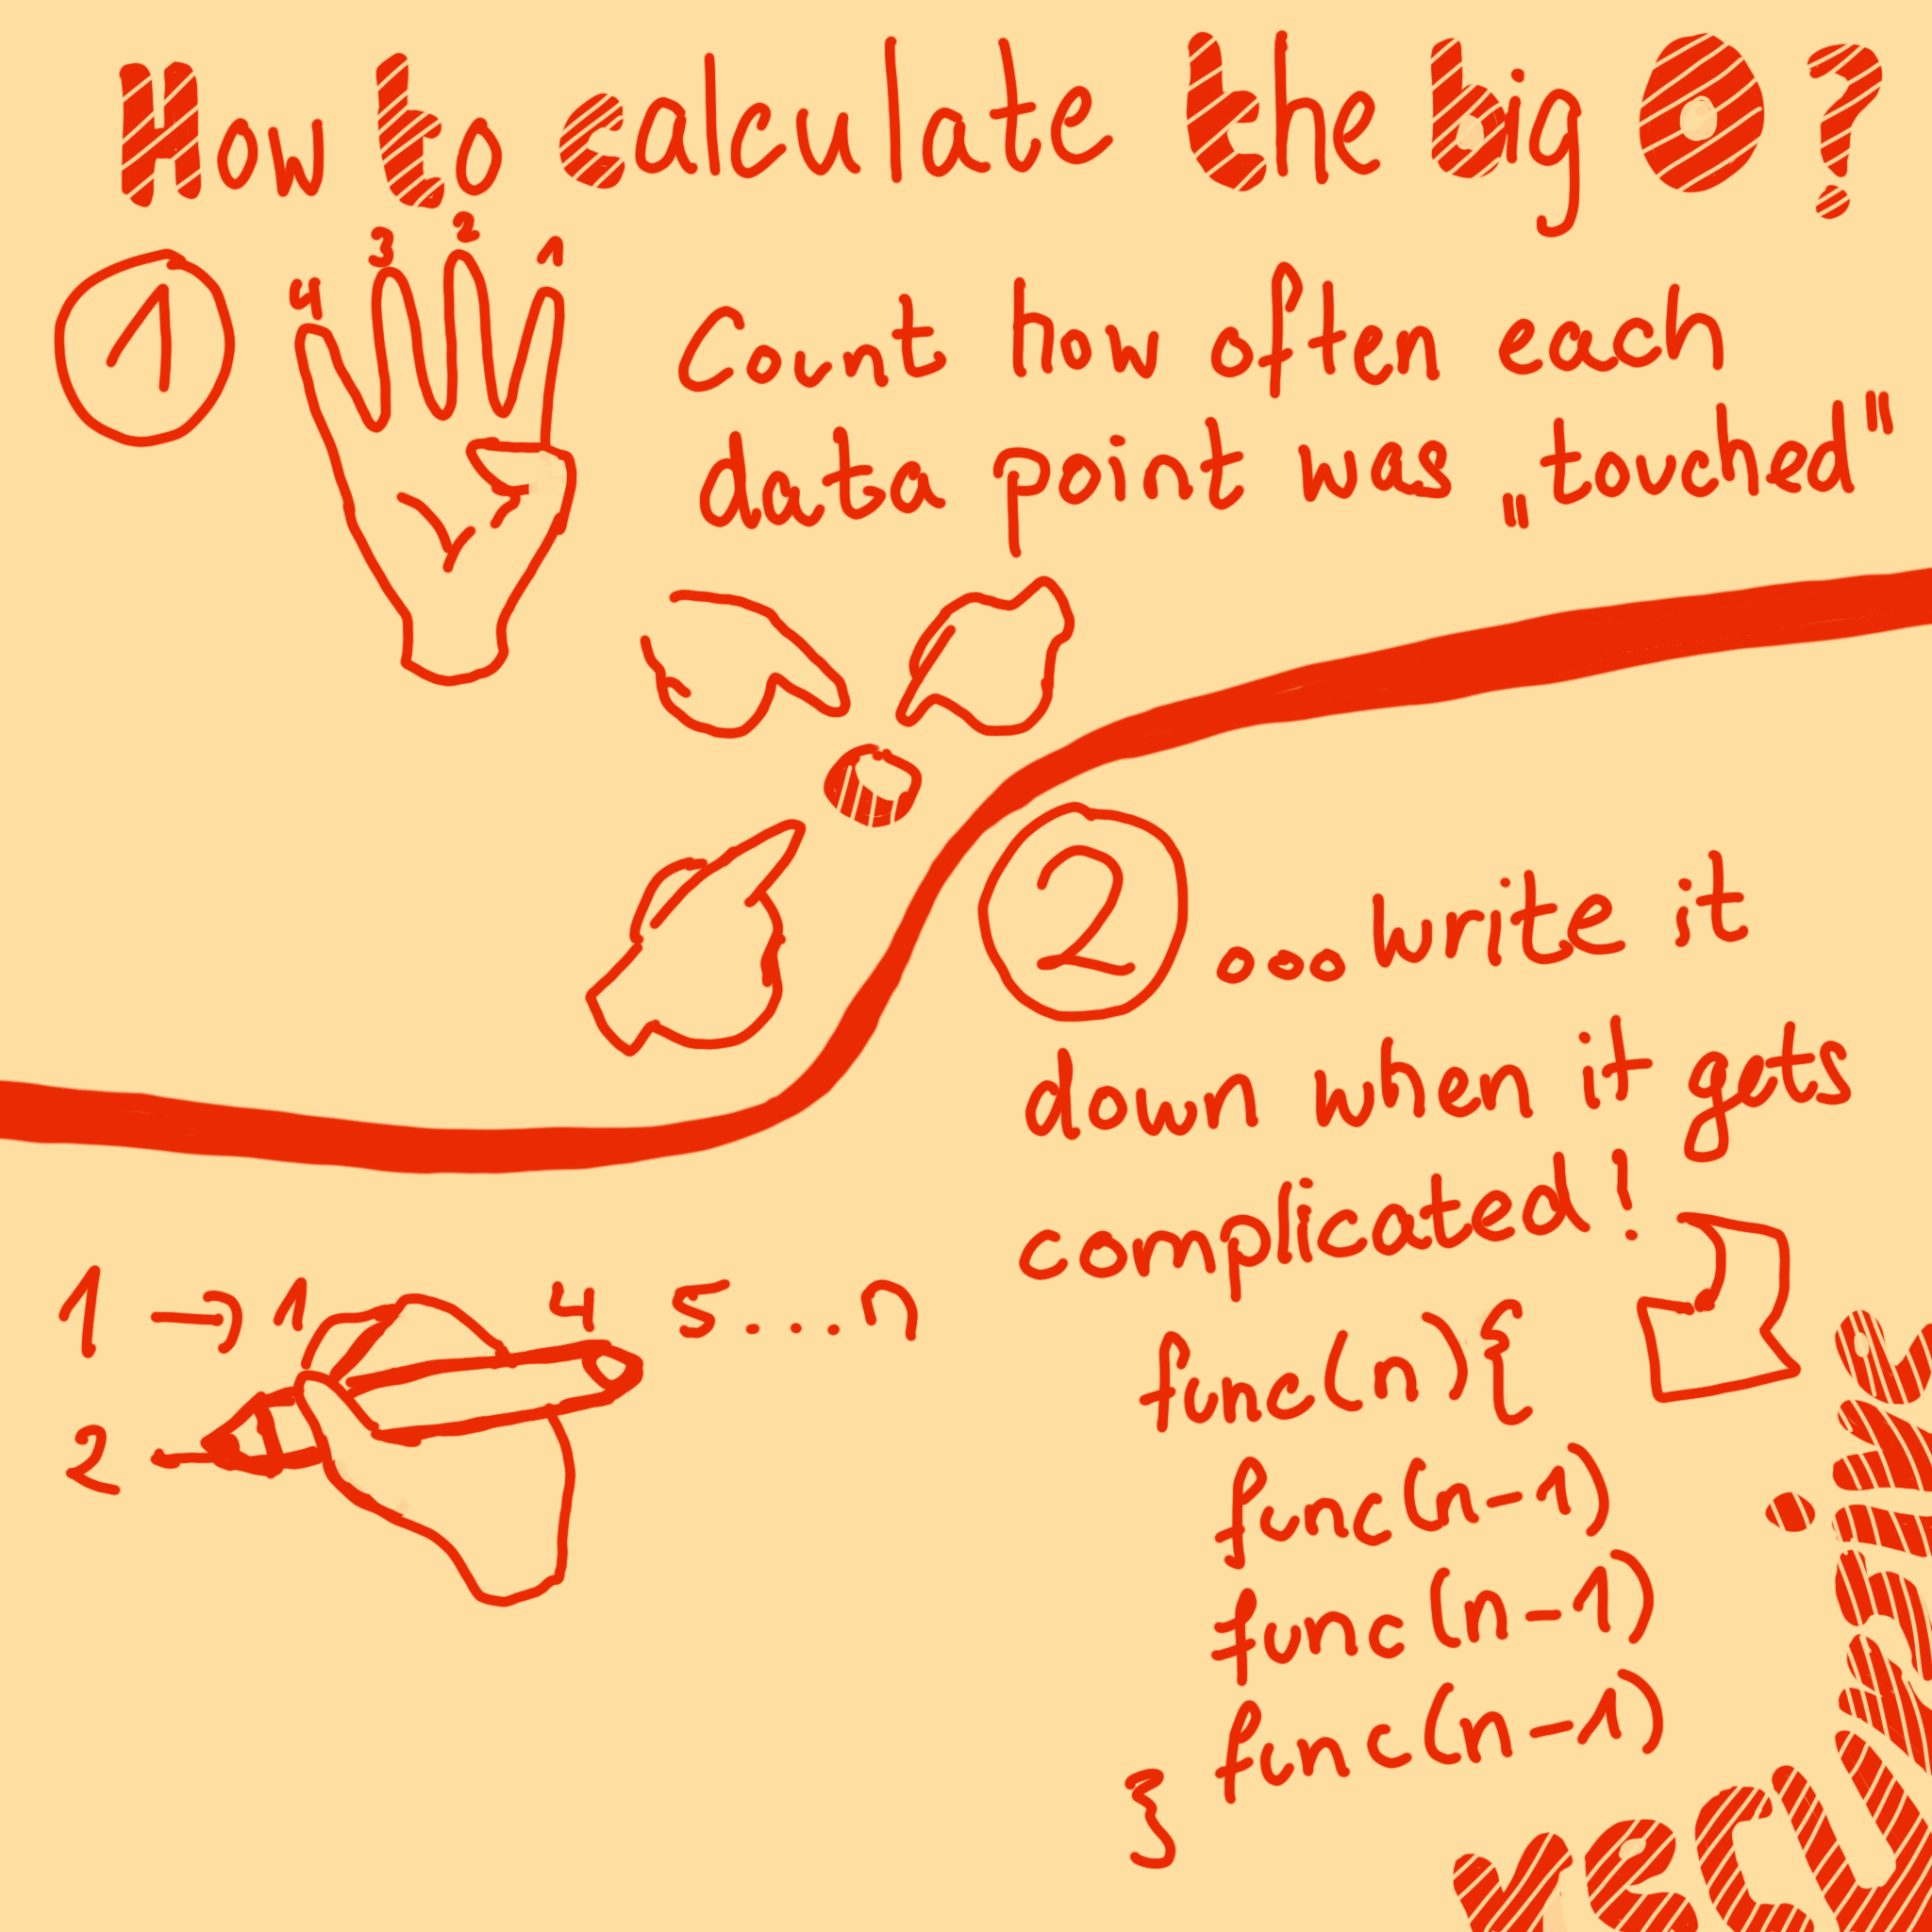 How to calculate the big O?
1
4 3 2 1
Count how often each
data point was „touched"
2
...write it
down when it gets
complicated!
1 → 1 4 5....n
2
func(n){
func(n-1)
func(n-1)
func(n-1)
}